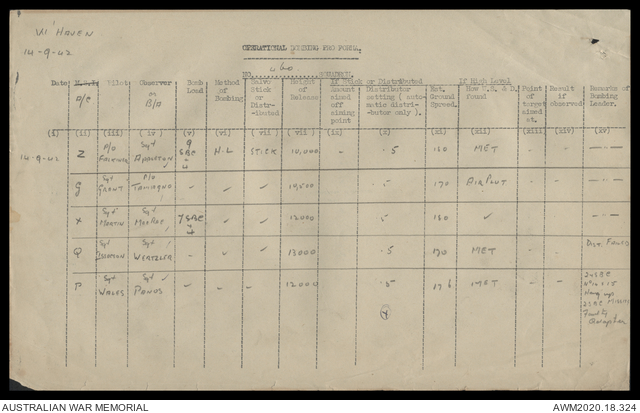 W' HAVEN
14-9-42
OPERATIONAL BOMBING PRO FORMA.
NO. 460. SQUADRON.
Date A/C Pilot Observer or B/A Bomb Load Method of Bombing Salvo Stick or Distributed Height of Release If Stick or Distributed If High Level Point of target aimed at. Result if observed Remarks of Bombing Leader.
Amount aimed off aiming point Distributor setting (automatic distributor only). Est. Ground Speed. How W.S. & D. Found
(i) (ii) (iii) (iv) (v) (vi) (vii) (viii) (ix) (x) (xi) (xii) (xiii) (xiv) (xv)
14-9-42 Z P/O Sgt APPLETON 9 SBC H.L STICK 10,000 - .5 180 MET - - - - -
G Sgt GRANT P/O - ✓ ✓ 10,500 .5 170 AIR PLOT - - - - -
X Sgt MARTIN Sgt 7 SBC ✓ ✓ 12000 .5 180 ✓ - - - - -
Q Sgt Sgt WERTZLER - ✓ ✓ 13000 .5 MET - - Dist.
P Sgt WALES Sgt PONDS - - - 12000 .5 176 MET - - Hung up
Faulty
AUSTRALIAN WAR MEMORIAL
AWM2020.18.324